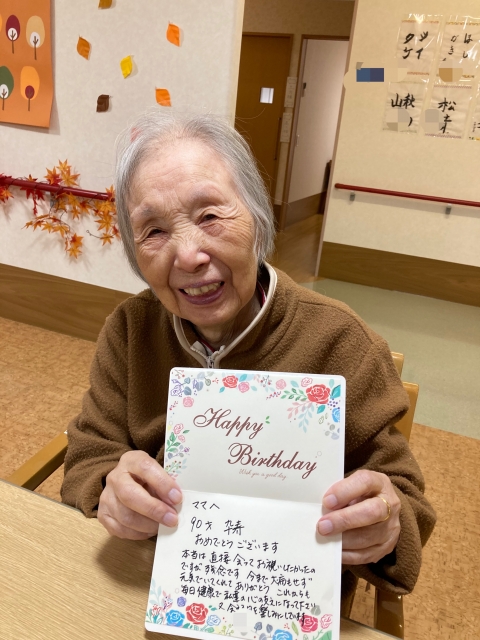 タケ
ツイ
はがき
秋
山ノ
松
Happy
Birthday
Wish you a good day
ママへ
90才 卆寿
おめでとうございます
本当は直接会ってお祝いしたかったの
ですが残念です 今まで大病もせず
元気でいてくれてありがとう これからも
毎日健康で私達の心の支えになって下さい
又会えるのを楽しみにしています